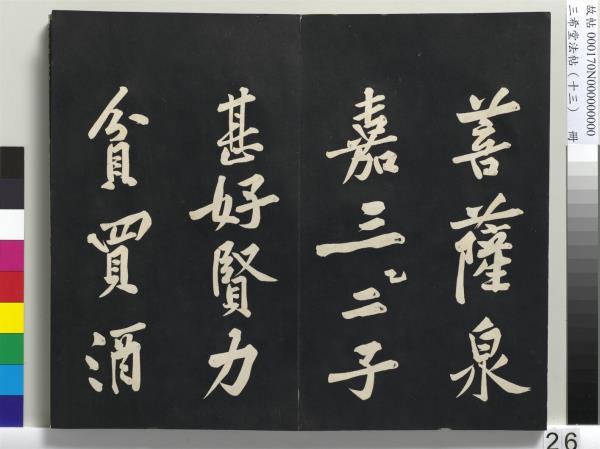 菩薩泉
嘉三二子
甚好賢力
貧買酒
故帖 000170N000000000
三希堂法帖（十三） 冊
26